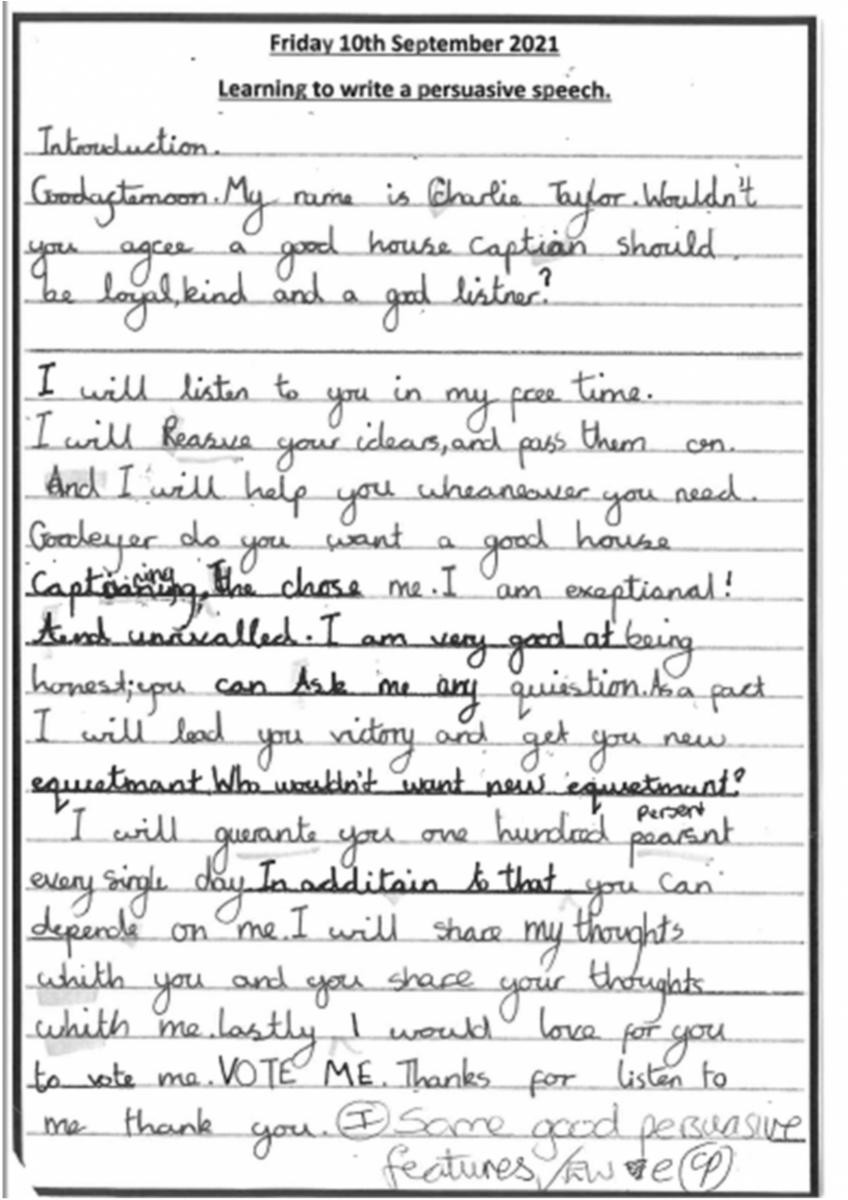 Friday 10th September 2021
Learning to write a persuasive speech.
Introuduction.
Goodagternoon. My name is Charlie Taylor. Wouldn't
you agree a good house captian should
be loyal, kind and a good listner?
I will listen to you in my free time.
I will Reasive your idears, and pass them on.
And I will help you wheaneaver you need.
do you want a good house
The chose me. I am exeptional!
And unrivalled. I am very good at being
honest; you can Ask me any quiestion. As a fact
I will lead you victory and get you new
equietmant. Who wouldn't want new equietmant?
I will guerante you one hundred pearsnt
persent
every single day. In additain to that you can
depende on me. I will share my thoughts
whith you and you share your thoughts
whith me. lastly I would love for you
to vote me. VOTE ME. Thanks for listen to
me thank you. I Some good persuasive
features